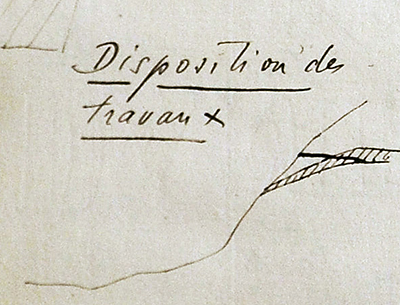 Disposition des
travaux